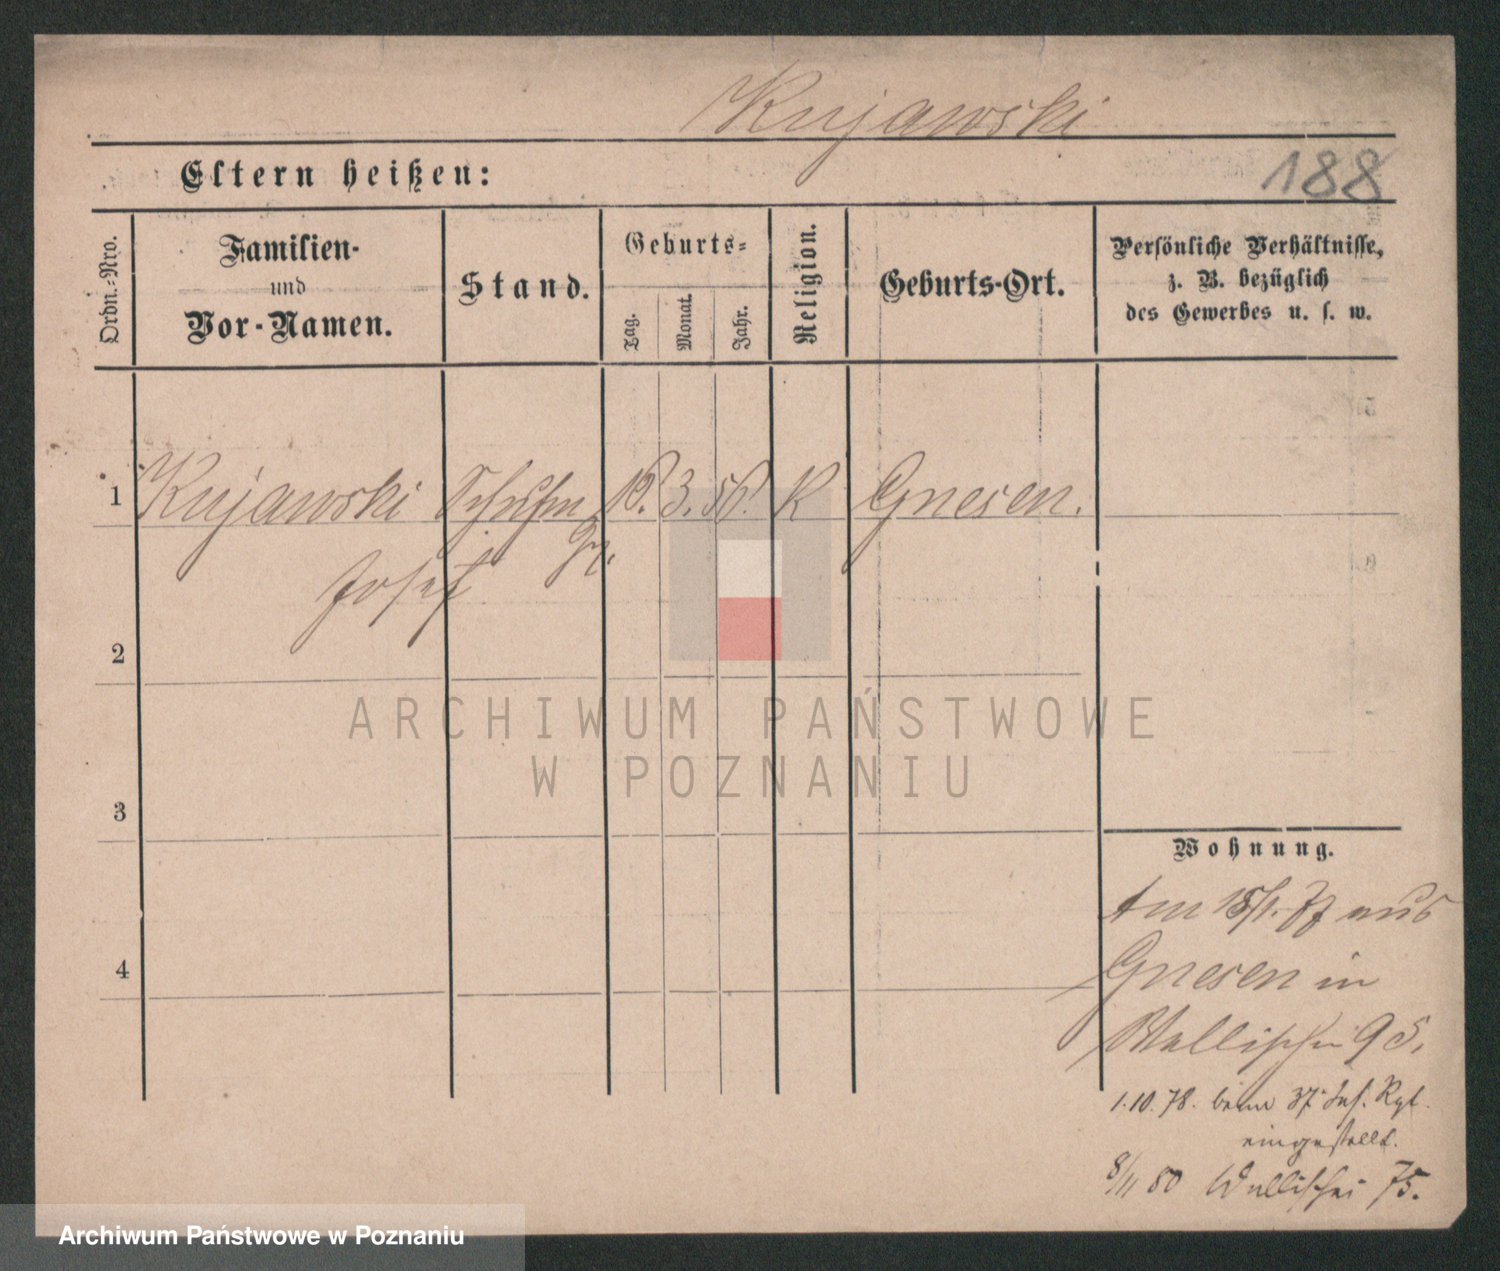 Kujawski
Eltern heißen:
188
Ordn.-Nro.
Familien-
und
Vor-Namen.
Stand.
Geburts-
Tag.
Monat.
Jahr.
Religion.
Geburts-Ort.
Persönliche Verhältnisse,
z. B. bezüglich
des Gewerbes u. s. w.
1 Kujawski Schuhm 3. K Gnesen.
Josef
2
3
4
ARCHIWUM PAŃSTWOWE
W POZNANIU
Wohnung.
Am 18/1. 77 aus
Gnesen in
Wallischei 95.
1.10.78. beim 37. Inf. Rgt.
eingestellt.
8/11 80 Wallischei 75.
Archiwum Państwowe w Poznaniu